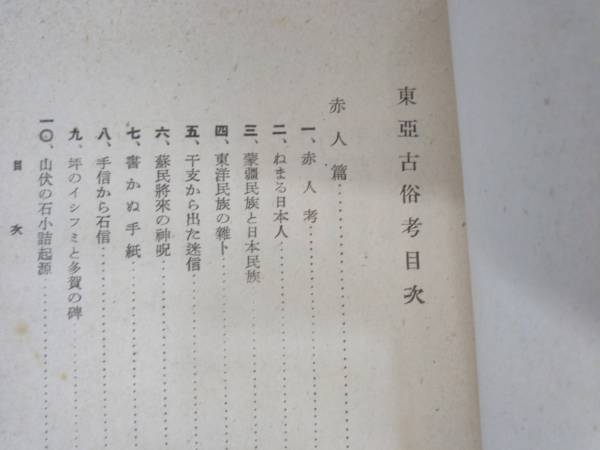 東亞古俗考目次
赤人篇
一、赤人考
二、ねまる日本人
三、蒙疆民族と日本民族
四、東洋民族の雜卜
五、干支から出た迷信
六、蘇民將來の神呪
七、書かぬ手紙
八、手信から石信
九、坪のイシフミと多賀の碑
一〇、山伏の石小詰起源
目次